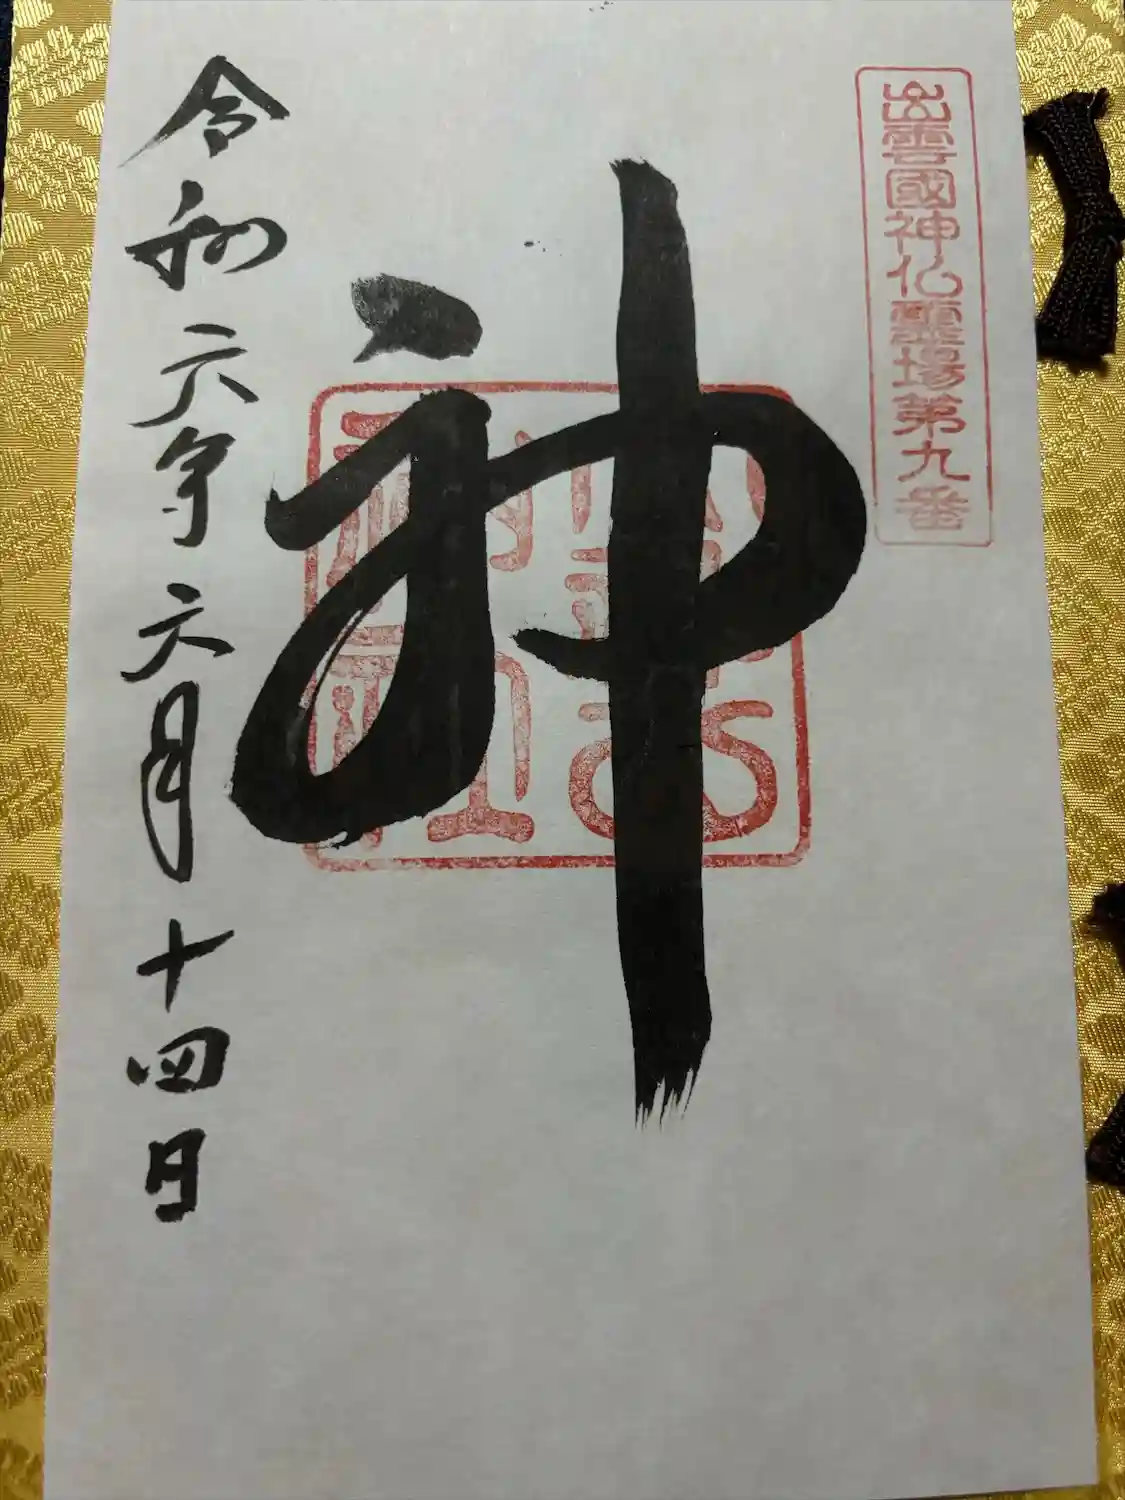 出雲國神仏霊場第九番
神
令和六年六月十四日